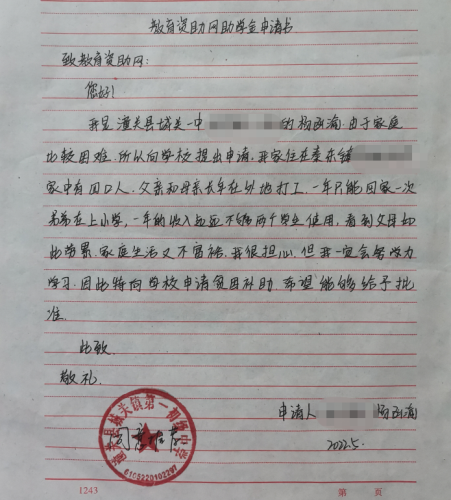 教育资助网助学金申请书
致教育资助网:
您好!
我是潼关县城关一中 的杨函瀚.由于家庭
比较困难.所以向学校提出申请.我家住在秦东镇
家中有四口人.父亲和母亲长年在外地打工.一年只能回家一次
弟弟在上小学,一年的收入远远不够两个学生使用,看到父母如
此劳累.家庭生活又不富裕.我很担心.但我一定会努力
学习.因此特向学校申请贫困补助.希望能够给予批
准.
此致.
敬礼.
潼关县城关镇第一初级中学
6105220102297
申请人 杨函瀚
2022.5.
1243
第 页